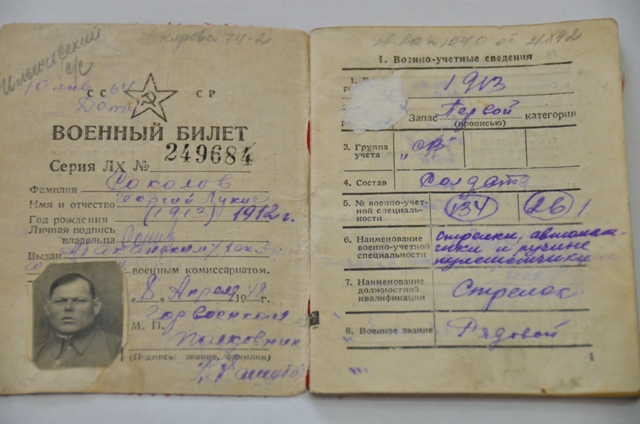 Кирова 74-2
СС СР
ВОЕННЫЙ БИЛЕТ
Серия ЛХ № 249684
Фамилия Соколов
Имя и отчество Георгий Лукич
Год рождения (1913) 1912 г.
Личная подпись
владельца
Выдан
военным комиссариатом.
8 Апреля 19 г.
Горвоенком
М. П.
Полковник
(Подпись: звание, фамилия)
I. Военно-учетные сведения
1. 1913
Запас Первой категории
(прописью)
3. Группа учета „ОВ"
4. Состав Солдат
5. № военно-учетной специальности 134 26
6. Наименование военно-учетной специальности стрелки, автоматчики и ручные пулеметчики
7. Наименование должностной квалификации Стрелок
8. Военное звание Рядовой
1